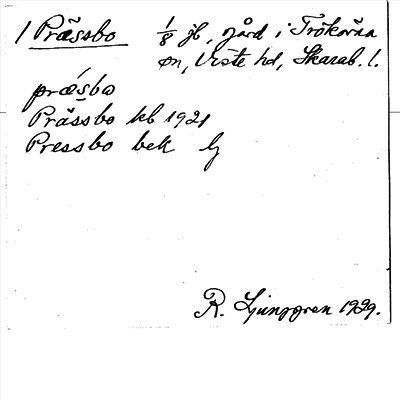 1 Prässbo 1/8 jb, gård i Trökörna
sn, Viste hd, Skarab. l.
præ´sbo
Prässbo kb 1921
Pressbo bek lj
R. Ljunggren 1929.